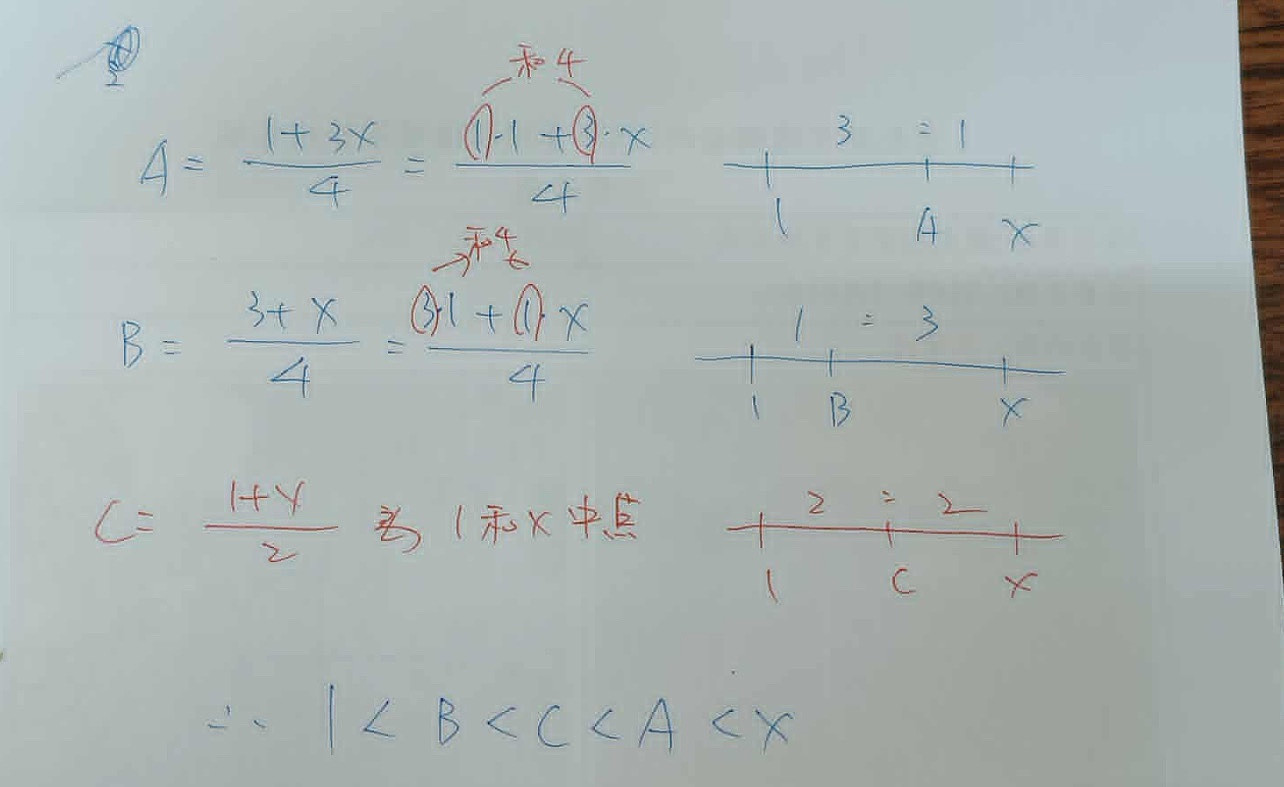 和4
A = (1+3x)/4 = (①·1+③·x)/4
3 : 1
1 A x
和4
B = (3+x)/4 = (③·1+①·x)/4
1 : 3
1 B x
C = (1+x)/2 為 1和x中点
2 : 2
1 C x
∴ 1<B<C<A<x